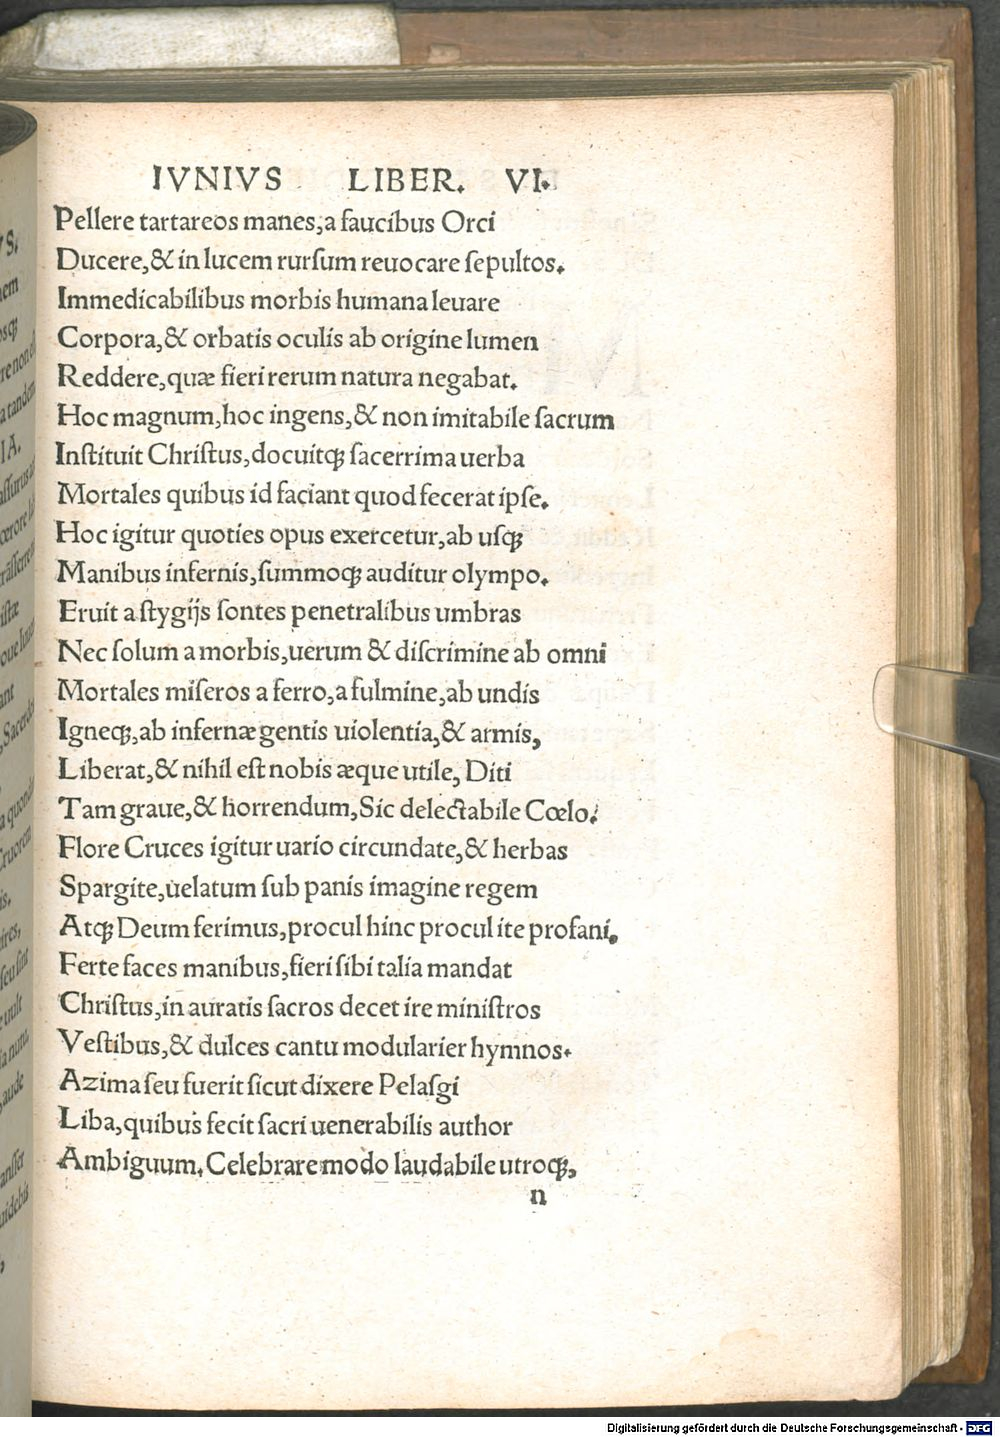 IVNIVS LIBER. VI.
Pellere tartareos manes,a faucibus Orci
Ducere,& in lucem rurſum reuocare ſepultos.
Immedicabilibus morbis humana leuare
Corpora,& orbatis oculis ab origine lumen
Reddere,quæ fieri rerum natura negabat.
Hoc magnum,hoc ingens,& non imitabile ſacrum
Inſtituit Chriſtus,docuitqꝫ ſacerrima uerba
Mortales quibus id faciant quod fecerat ipſe.
Hoc igitur quoties opus exercetur,ab uſqꝫ
Manibus infernis,ſummoqꝫ auditur olympo.
Eruit a ſtygijs ſontes penetralibus umbras
Nec ſolum a morbis,uerum & diſcrimine ab omni
Mortales miſeros a ferro,a fulmine,ab undis
Igneqꝫ,ab infernæ gentis uiolentia,& armis,
Liberat,& nihil eſt nobis æque utile, Diti
Tam graue,& horrendum,Sic delectabile Cœlo.
Flore Cruces igitur uario circundate,& herbas
Spargite,uelatum ſub panis imagine regem
Atqꝫ Deum ferimus,procul hinc procul ite profani.
Ferte faces manibus,fieri ſibi talia mandat
Chriſtus,in auratis ſacros decet ire miniſtros
Veſtibus,& dulces cantu modularier hymnos.
Azima ſeu fuerit ſicut dixere Pelaſgi
Liba,quibus fecit ſacri uenerabilis author
Ambiguum.Celebrare modo laudabile utroqꝫ,
n
Digitalisierung gefördert durch die Deutsche Forschungsgemeinschaft - DFG